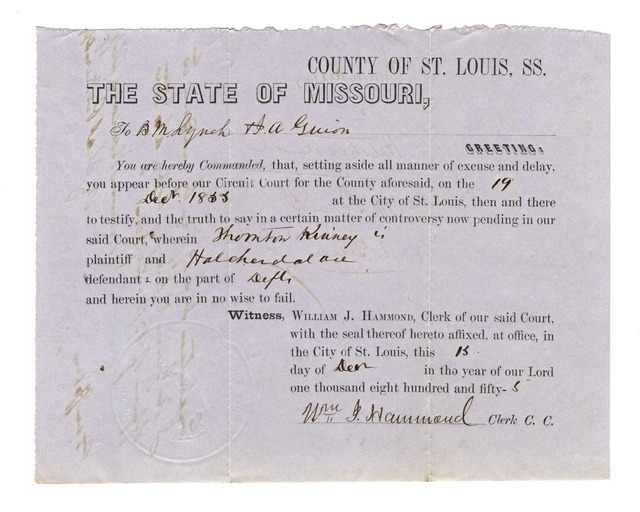 COUNTY OF ST. LOUIS, SS.
THE STATE OF MISSOURI,
To B M Lynch & J A Guion
GREETING:
You are hereby Commanded, that, setting aside all manner of excuse and delay,
you appear before our Circuit Court for the County aforesaid, on the 19
Decr. 1855 at the City of St. Louis, then and there
to testify, and the truth to say in a certain matter of controversy now pending in our
said Court, wherein Thornton Kinney is
plaintiff and Hatcher
defendants on the part of Defts
and herein you are in no wise to fail.
Witness, WILLIAM J. HAMMOND, Clerk of our said Court,
with the seal thereof hereto affixed, at office, in
the City of St. Louis, this 15
day of Decr in the year of our Lord
one thousand eight hundred and fifty-5
Wm J. Hammond Clerk C. C.